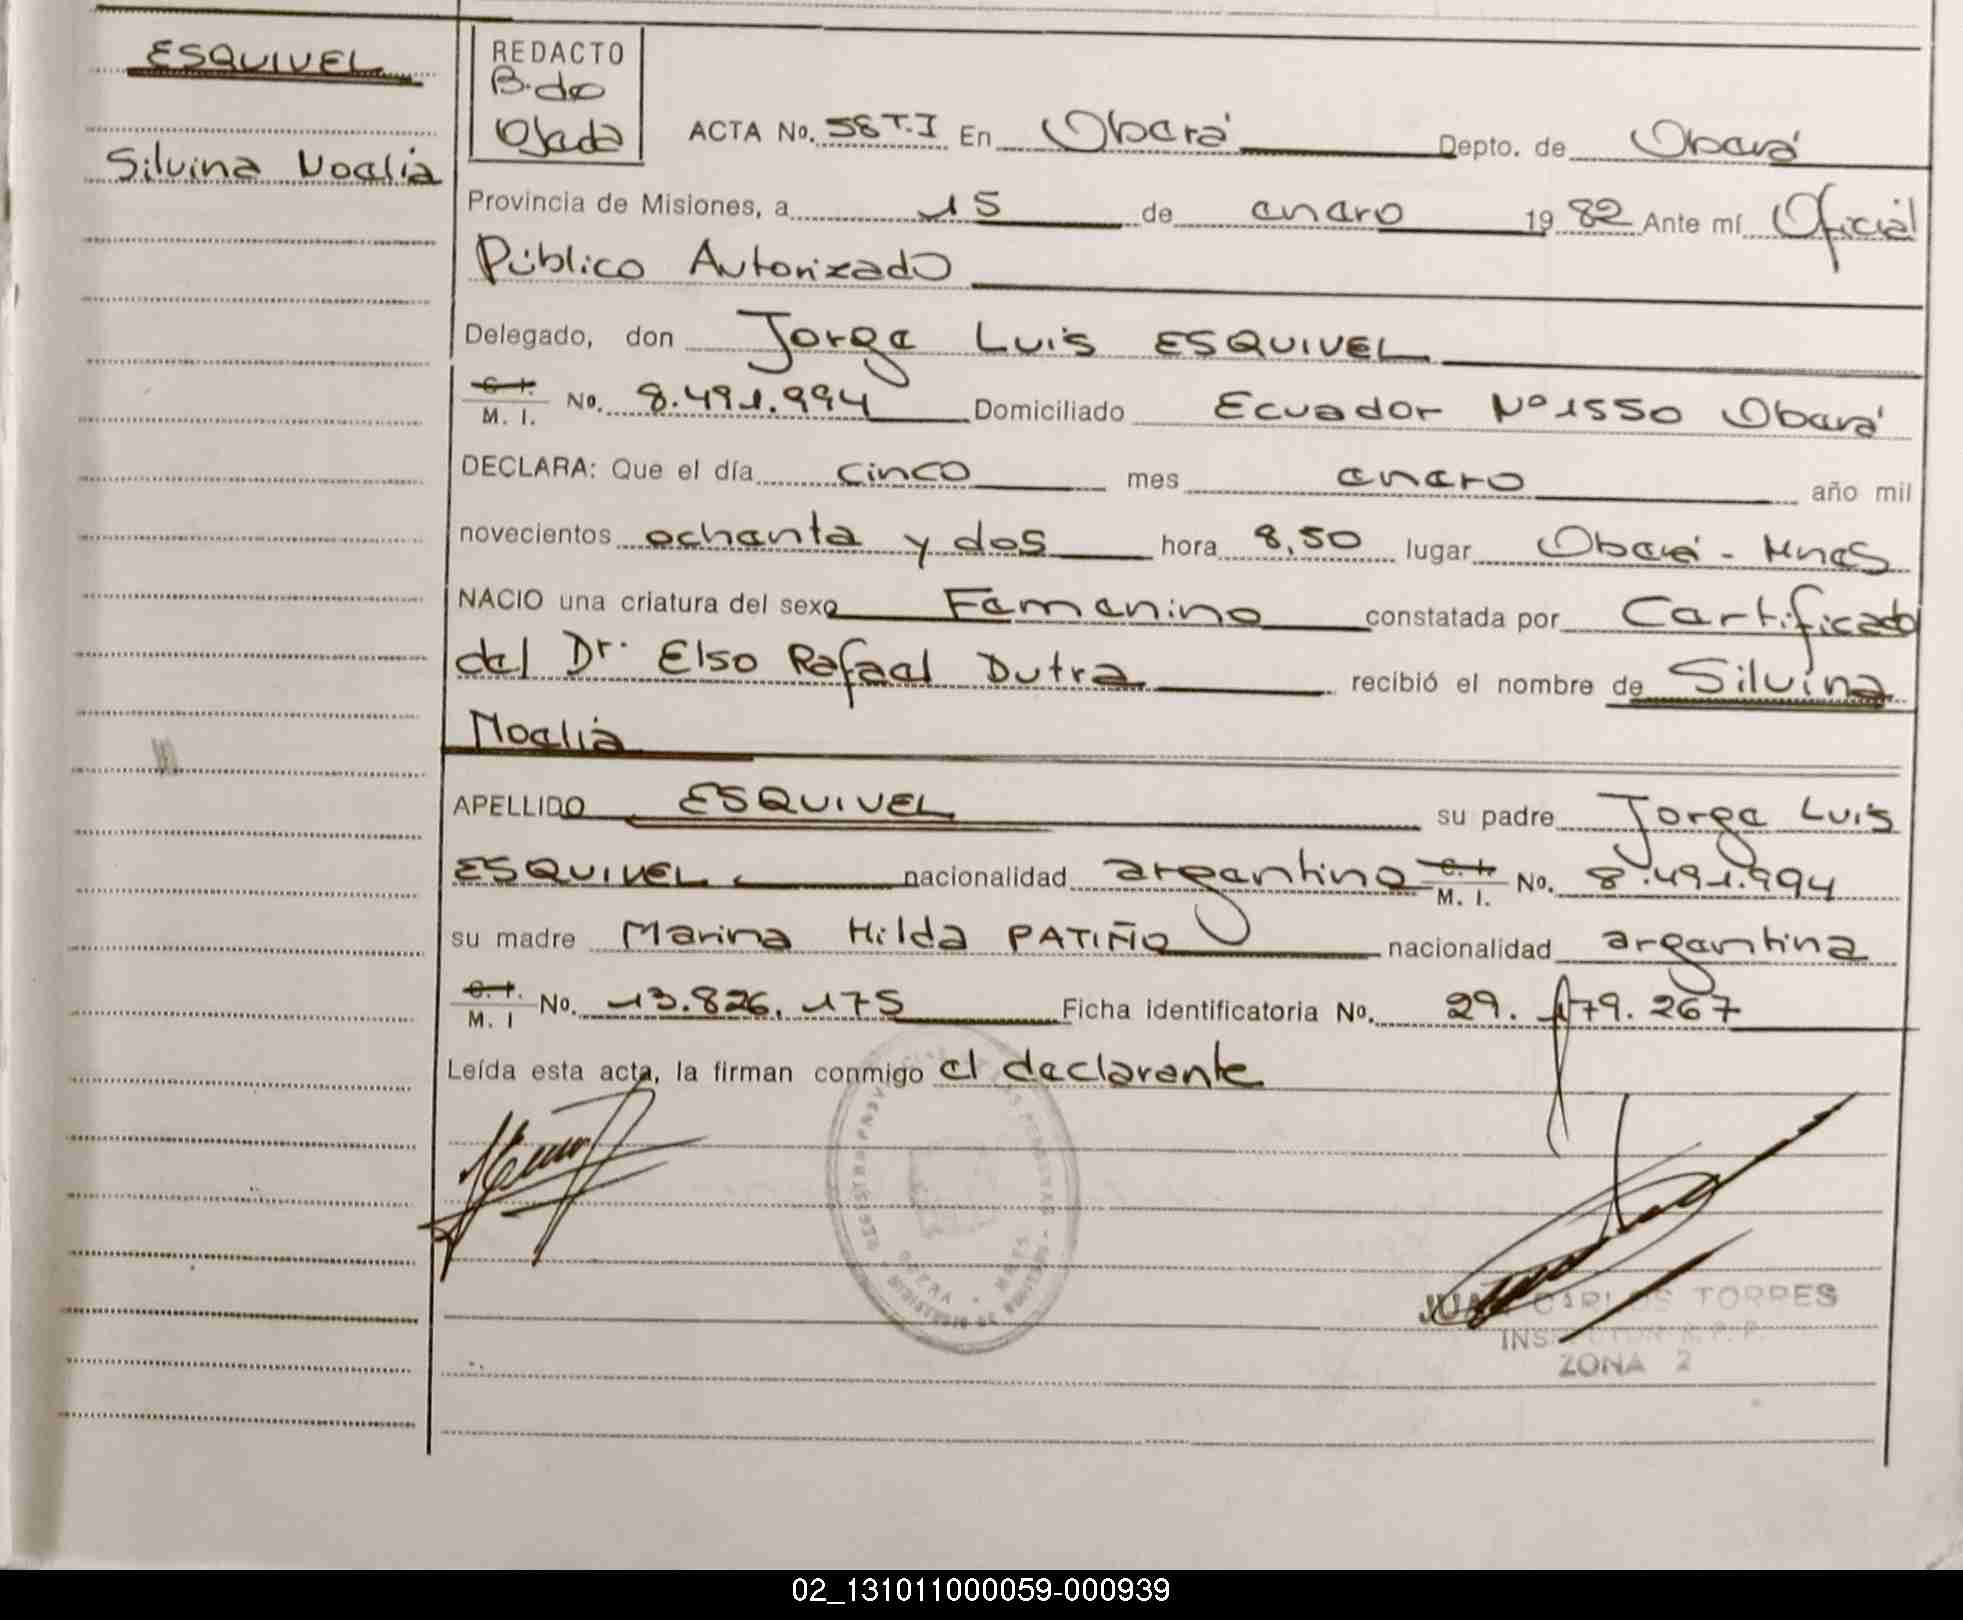 ESQUIVEL
Silvina Noelia
REDACTO
B. de
Ojeda
ACTA No. 58 T.I En Oberá Depto. de Oberá
Provincia de Misiones, a 15 de enero 1982 Ante mí Oficial
Público Autorizado
Delegado, don Jorge Luis ESQUIVEL
C. I.
M. I. No. 8.491.994 Domiciliado Ecuador Nº 1550 Oberá
DECLARA: Que el día cinco mes enero año mil
novecientos ochenta y dos hora 8,50 lugar Oberá - Mnes
NACIO una criatura del sexo Femenino constatada por Certificado
del Dr. Elso Rafael Dutra recibió el nombre de Silvina
Noelia
APELLIDO ESQUIVEL su padre Jorge Luis
ESQUIVEL nacionalidad argentino C. I. M. I. No. 8.491.994
su madre Marina Hilda PATIÑO nacionalidad argentina
C. I.
M. I No. 13.826.175 Ficha identificatoria No. 29.179.267
Leída esta acta, la firman conmigo el declarante
JUAN CARLOS TORRES
INSPECTOR R. P. P.
ZONA 2
02_131011000059-000939